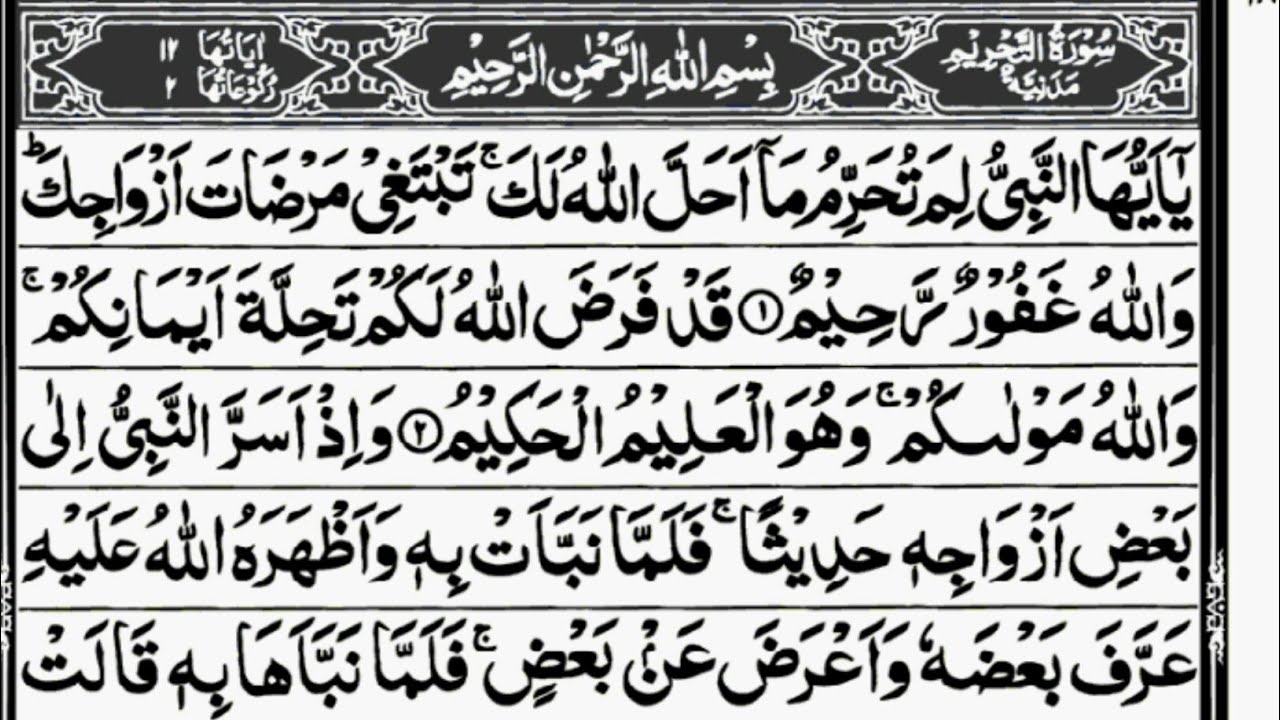 سُوْرَةُ التَّحْرِيْمِ مَدَنِيَّةٌ
بِسْمِ اللّٰهِ الرَّحْمٰنِ الرَّحِيْمِ
اٰيَاتُهَا ١٢
رُكُوْعَاتُهَا ٢
يٰۤاَيُّهَا النَّبِيُّ لِمَ تُحَرِّمُ مَاۤ اَحَلَّ اللّٰهُ لَكَ ۚ تَبْتَغِيْ مَرْضَاتَ اَزْوَاجِكَ ؕ
وَاللّٰهُ غَفُوْرٌ رَّحِيْمٌ ① قَدْ فَرَضَ اللّٰهُ لَكُمْ تَحِلَّةَ اَيْمَانِكُمْ ۚ
وَاللّٰهُ مَوْلٰىكُمْ ۚ وَهُوَ الْعَلِيْمُ الْحَكِيْمُ ② وَاِذْ اَسَرَّ النَّبِيُّ اِلٰى
بَعْضِ اَزْوَاجِهٖ حَدِيْثًا ۚ فَلَمَّا نَبَّاَتْ بِهٖ وَاَظْهَرَهُ اللّٰهُ عَلَيْهِ
عَرَّفَ بَعْضَهٗ وَاَعْرَضَ عَنْۢ بَعْضٍ ۚ فَلَمَّا نَبَّاَهَا بِهٖ قَالَتْ